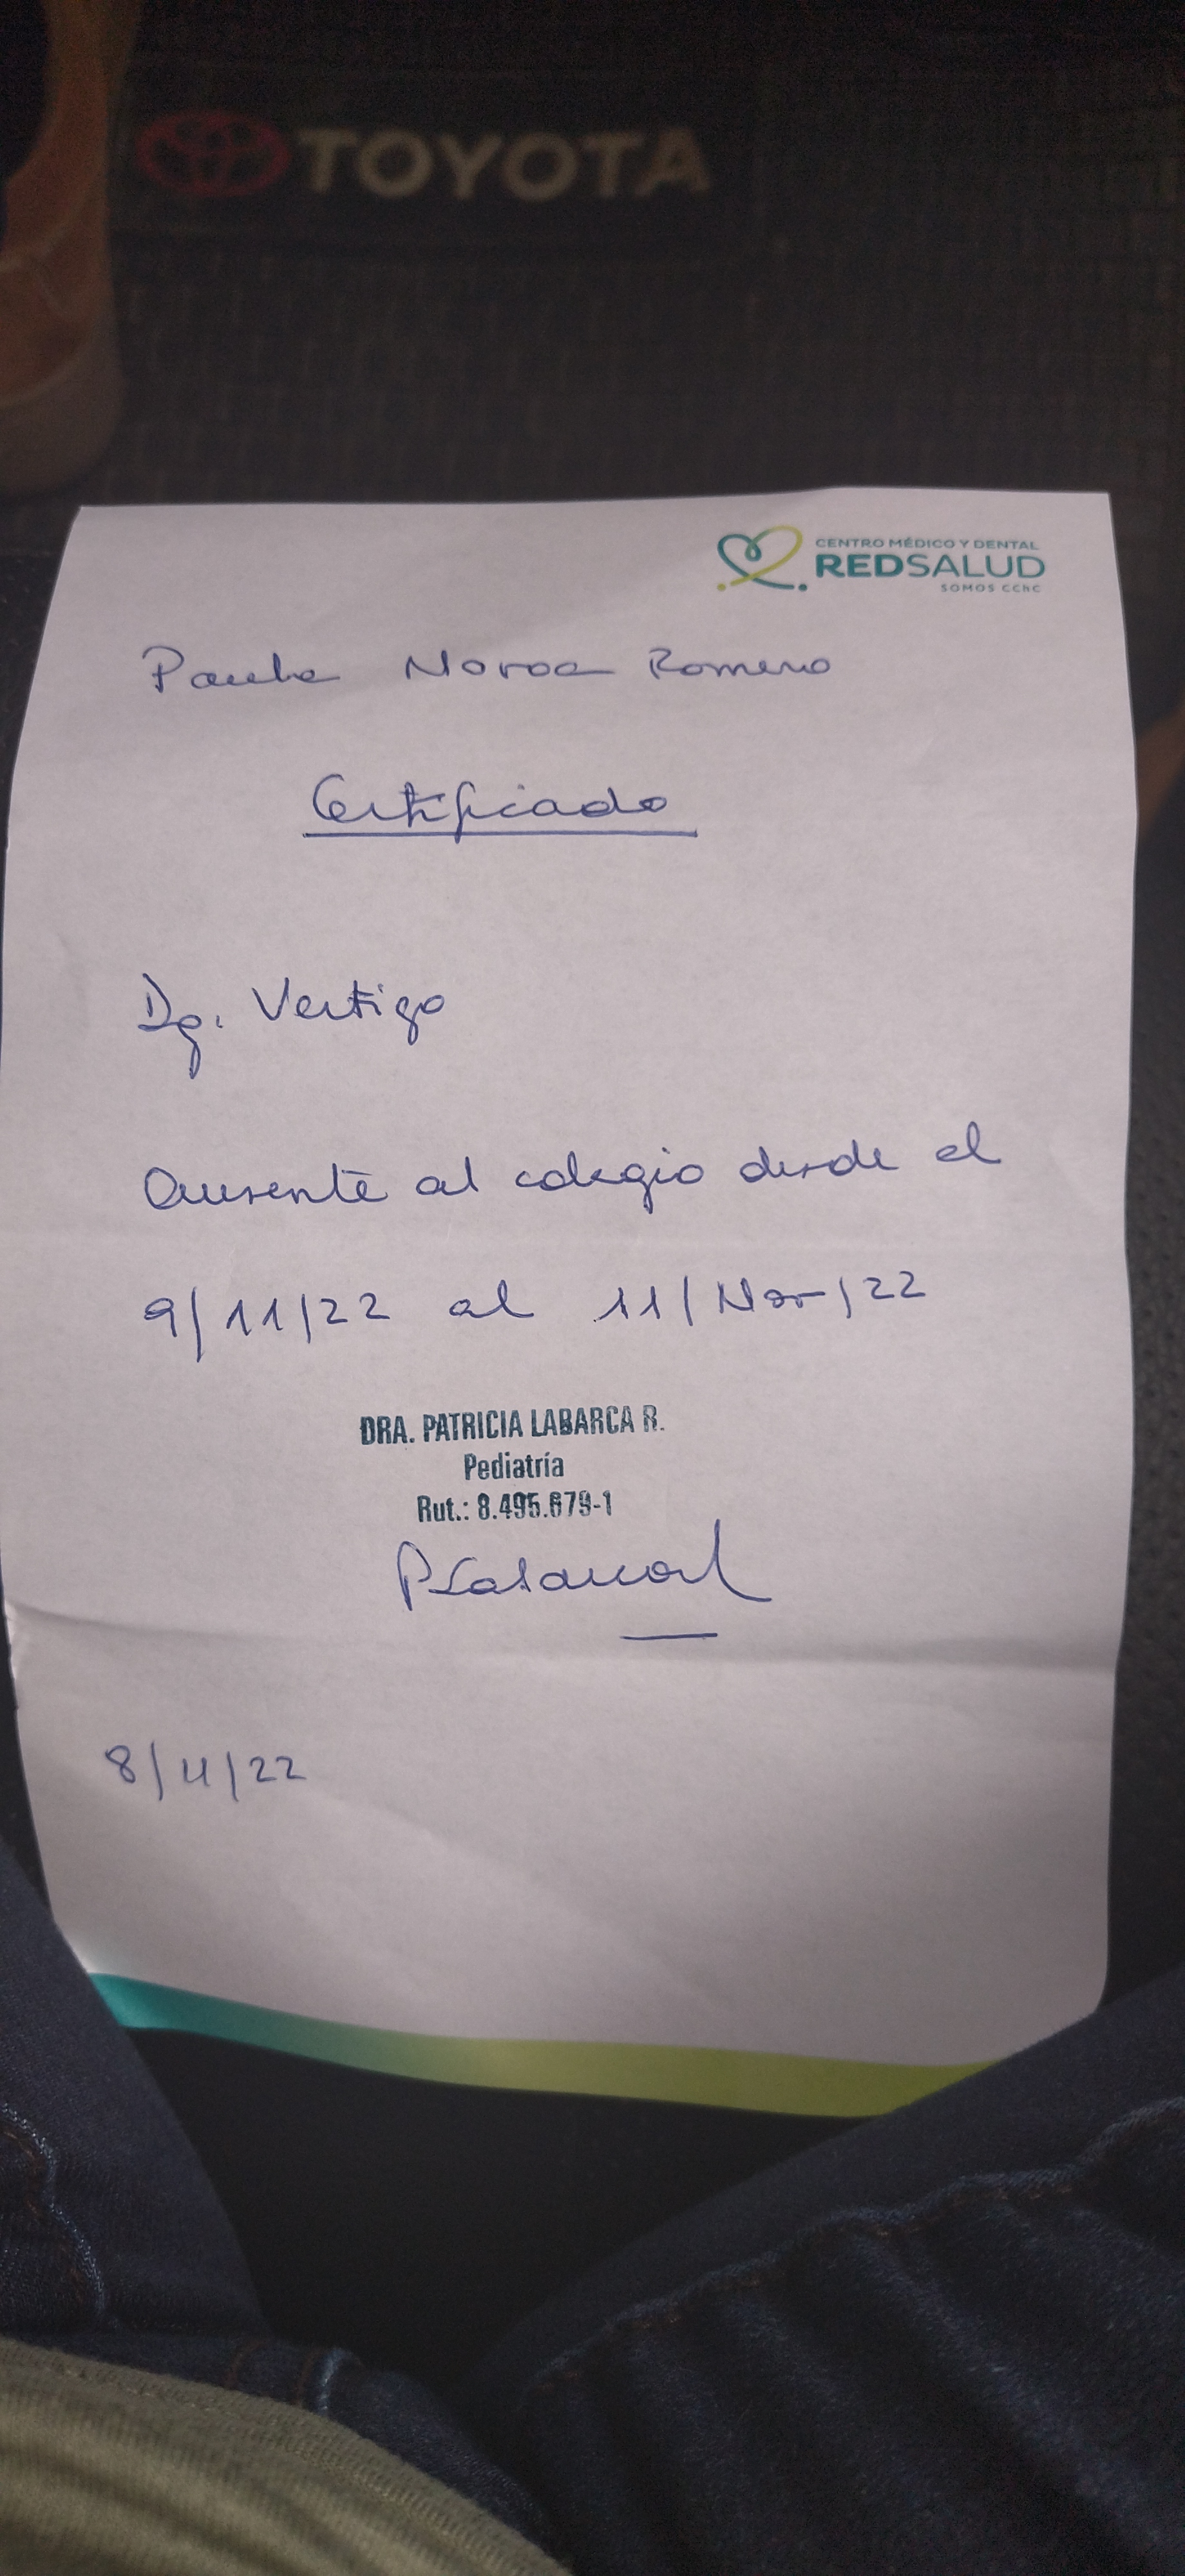 TOYOTA
CENTRO MÉDICO Y DENTAL
REDSALUD
SOMOS CChC
Paula Novoa Romero
Certificado
Dg. Vertigo
Ausente al colegio desde el
9/11/22 al 11/Nov/22
DRA. PATRICIA LABARCA R.
Pediatría
Rut.: 8.495.679-1
PLabarcaR
8/11/22